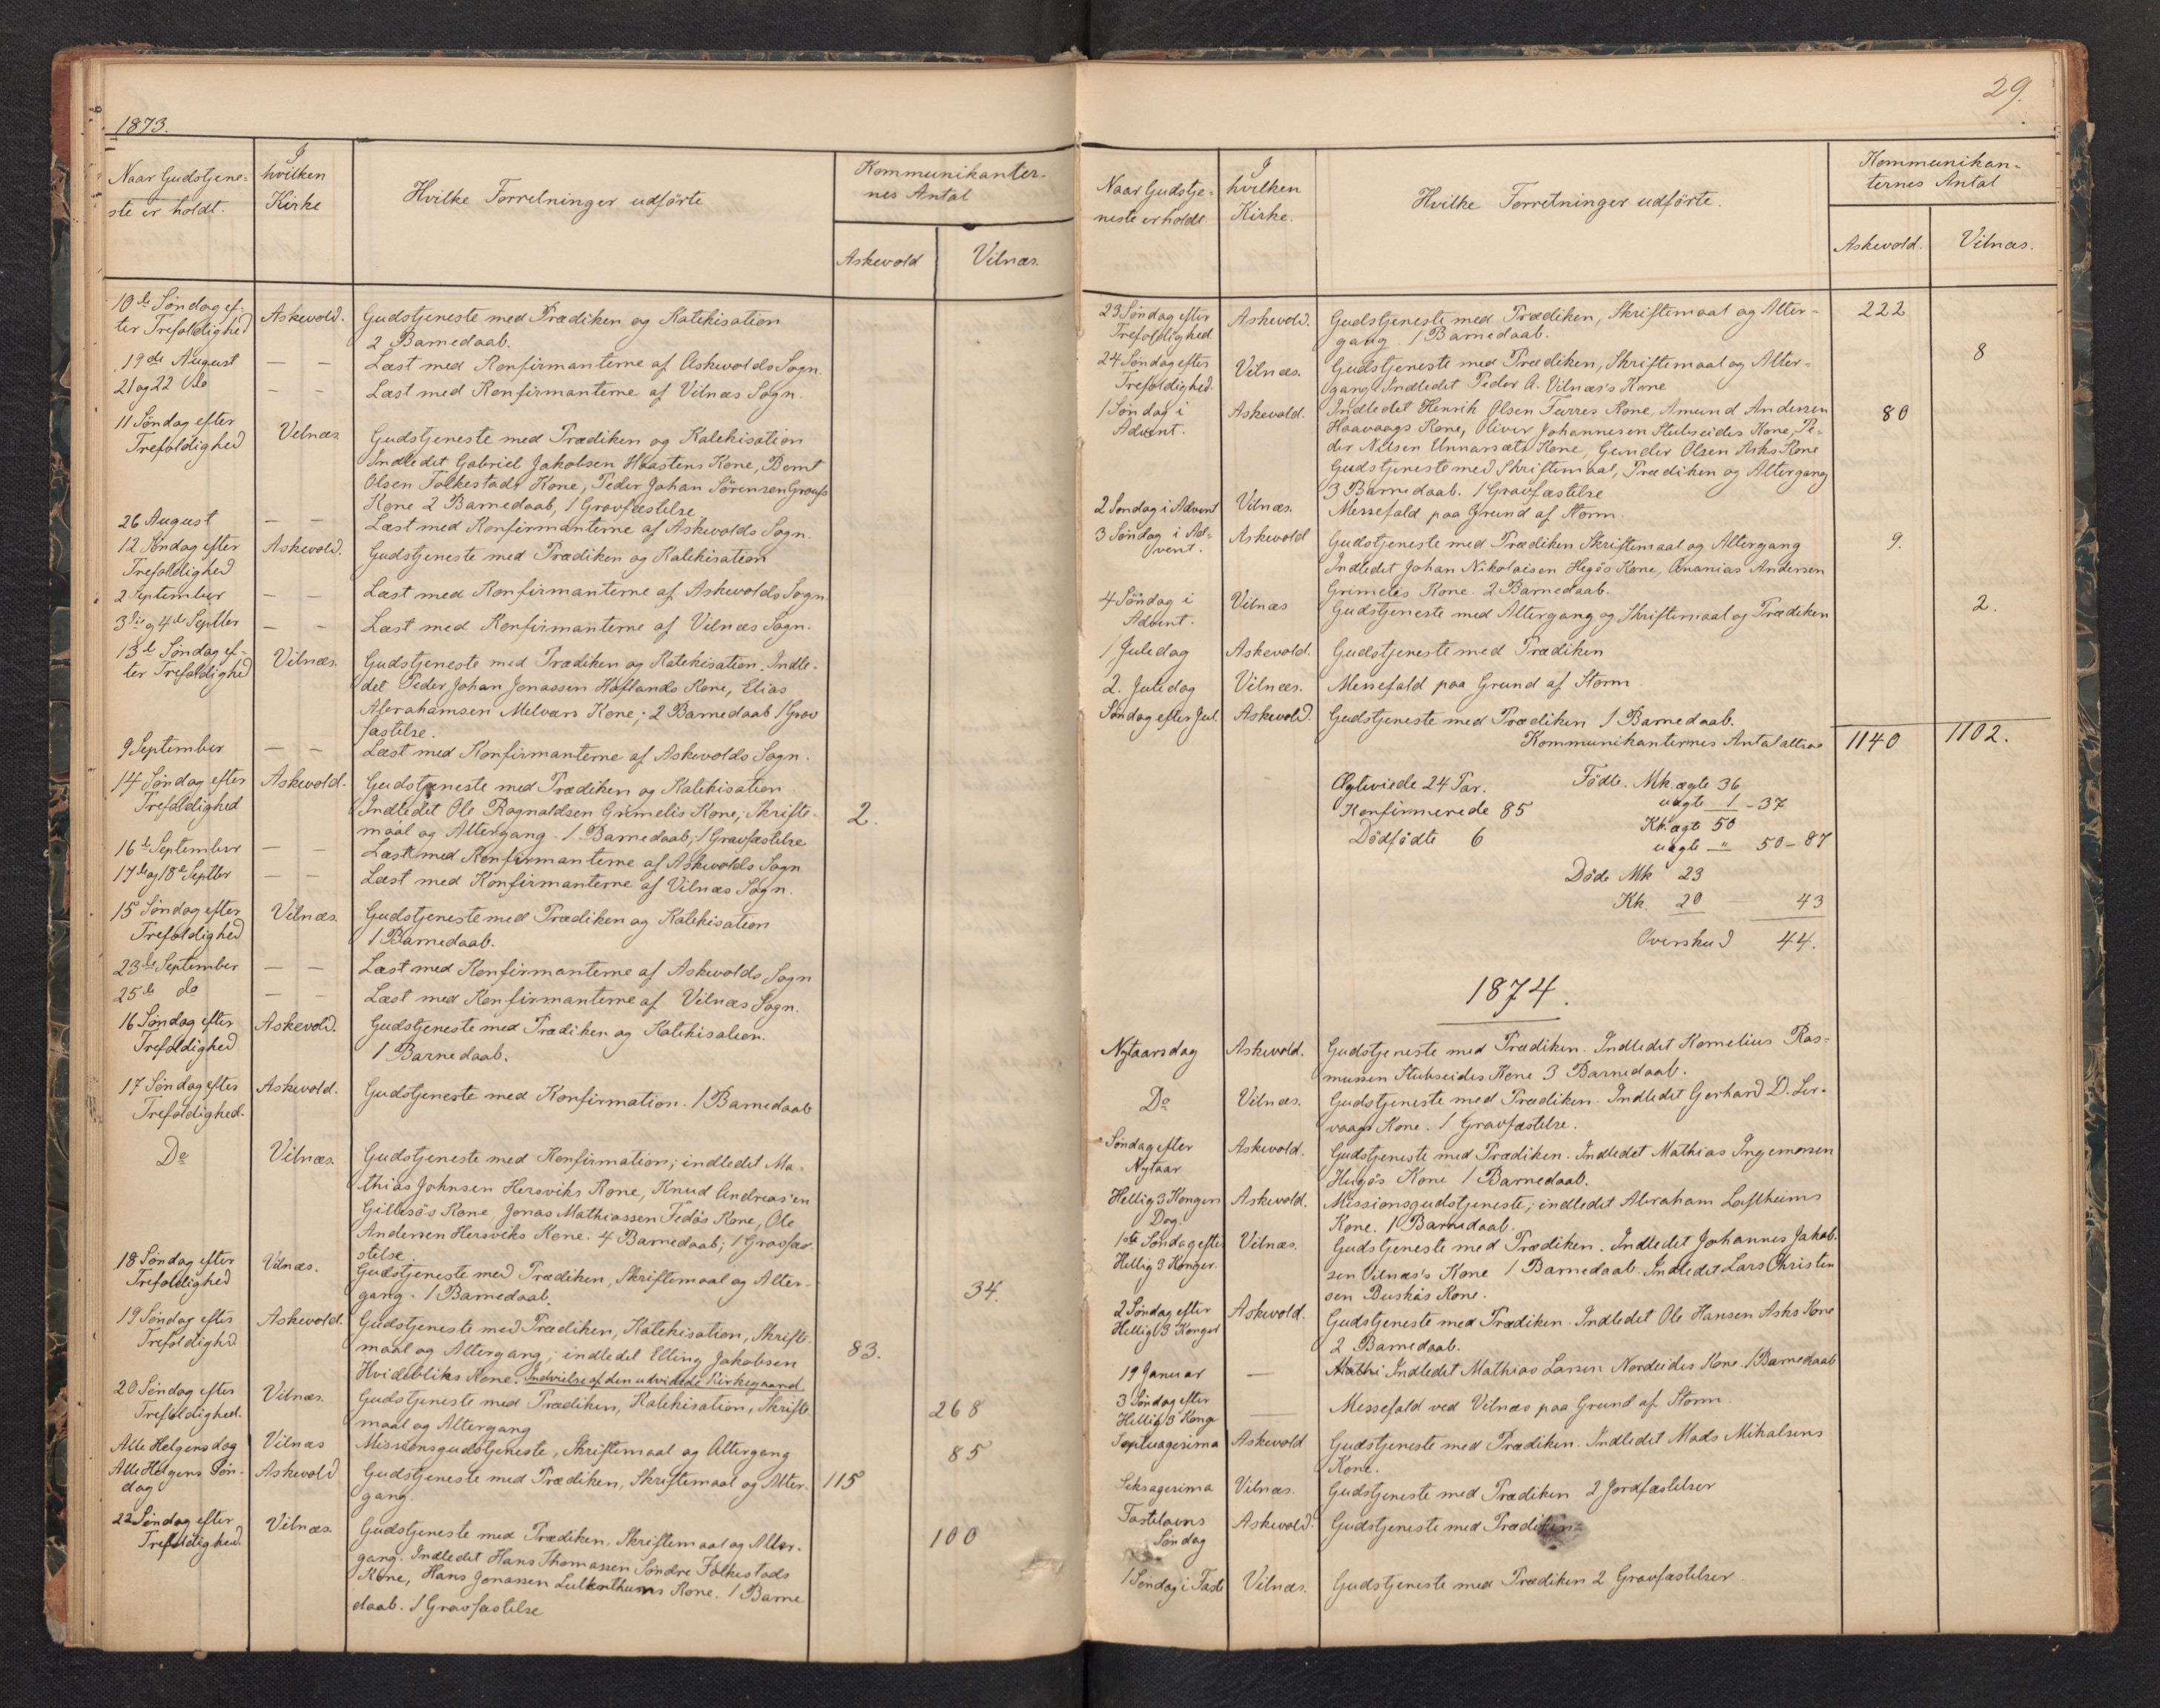 1873.
Naar Gudstjene-
ste er holdt.
I
hvilken
Kirke
Hvilke Forretninger udførte
Kommunikanter-
nes Antal
Askevold
Vilnæs.
10de Søndag ef-
ter Trefoldighed
Askevold.
Gudstjeneste med Prædiken og Katekisation
2 Barnedaab.
19de August
— —
Læst med Konfirmanterne af Askevolds Sogn.
21 og 22 do
— —
Læst med Konfirmanterne af Vilnæs Sogn.
11 Søndag efter
Trefoldighed
Vilnæs
Gudstjeneste med Prædiken og Katekisation
Indledet Gabriel Jakobsen Kone, Bernt
Olsen Folkestads Kone, Peder Johan Sørensen
Kone 2 Barnedaab, 1 Gravfæstelse
26 August
— —
Læst med Konfirmanterne af Askevolds Sogn.
12 Søndag efter
Trefoldighed
Askevold.
Gudstjeneste med Prædiken og Katekisation
2 September
— —
Læst med Konfirmanterne af Askevolds Sogn.
3die og 4de Septber
— —
Læst med Konfirmanterne af Vilnæs Sogn.
13de Søndag ef-
ter Trefoldighed
Vilnæs.
Gudstjeneste med Prædiken og Katekisation. Indle-
det Peder Johan Jonassen Høflands Kone, Elias
Abrahamsen Melværs Kone; 2 Barnedaab 1 Grav
fæstelse.
9 September
— —
Læst med Konfirmanterne af Askevolds Sogn.
14 Søndag efter
Trefoldighed
Askevold.
Gudstjeneste med Prædiken og Katekisation
Indledet Ole Ragnaldsen Grimelis Kone; Skrifte-
maal og Altergang. 1 Barnedaab; 1 Gravfæstelse
2.
16de September
— —
Læst med Konfirmanterne af Askevolds Sogn
17de og 18de Septber
— —
Læst med Konfirmanterne af Vilnæs Sogn.
15 Søndag efter
Trefoldighed
Vilnæs.
Gudstjeneste med Prædiken og Katekisation
1 Barnedaab.
23de September
— —
Læst med Konfirmanterne af Askevolds Sogn
25de do
— —
Læst med Konfirmanterne af Vilnæs Sogn.
16 Søndag efter
Trefoldighed
Askevold.
Gudstjeneste med Prædiken og Katekisation.
1 Barnedaab.
17 Søndag efter
Trefoldighed.
Askevold.
Gudstjeneste med Konfirmation. 1 Barnedaab
Do
Vilnæs.
Gudstjeneste med Konfirmation; indledet Ma-
thias Johnsen Hersviks Kone, Knud Andreas'en
Gillesøs Kone Jonas Mathiassen Fedøs Kone, Ole
Andersen Hersviks Kone. 4 Barnedaab; 1 Gravfæ-
stelse.
18 Søndag efter
Trefoldighed
Vilnæs.
Gudstjeneste med Prædiken, Skriftemaal og Alter-
gang. 1 Barnedaab.
34.
19 Søndag efter
Trefoldighed
Askevold.
Gudstjeneste med Prædiken, Katekisation, Skrifte-
maal og Altergang; indledet Elling Jakobsen
Hvidebliks Kone. Indvielse af den udvidede Kirkegaard
83.
20 Søndag efter
Trefoldighed.
Vilnæs.
Gudstjeneste med Prædiken, Katekisation, Skrifte
maal og Altergang
268
Alle Helgens dag
Vilnæs
Missionsgudstjeneste, Skriftemaal og Altergang
85
Alle Helgens Søn-
dag
Askevold
Gudstjeneste med Prædiken, Skriftemaal og Alter-
gang.
115
22 Søndag efter
Trefoldighed.
Vilnæs.
Gudstjeneste med Prædiken, Skriftemaal og Alter-
gang. Indledet Hans Thomassen Søndre Folkestads
Kone, Hans Jonassen Kone. 1 Barne
daab. 1 Gravfæstelse
100
29.
Naar Gudstje-
neste er holdt.
I
hvilken
Kirke.
Hvilke Forretninger udførte.
Kommunikan-
ternes Antal
Askevold.
Vilnæs.
23 Søndag efter
Trefoldighed.
Askevold.
Gudstjeneste med Prædiken, Skriftemaal og Alter-
gang. 1 Barnedaab.
222
24 Søndag efter
Trefoldighed.
Vilnæs.
Gudstjeneste med Prædiken, Skriftemaal og Alter-
gang. Indledet Peder A. Vilnæs's Kone
8
1 Søndag i
Advent.
Askevold.
Indledet Henrik Olsen Furres Kone, Amund Andersen
Haavaags Kone, Oliver Johannesen Stubseides Kone, Pe-
der Nilsen Unnarsæts Kone, Gunder Olsen Asks Kone
Gudstjeneste med Skriftemaal, Prædiken og Altergang
3 Barnedaab. 1 Gravfæstelse
80
2 Søndag i Advent
Vilnæs.
Messefald paa Grund af Storm.
3 Søndag i Ad-
vent.
Askevold
Gudstjeneste med Prædiken Skriftemaal og Altergang
Indledet Johan Nikolaisen Hegøs Kone, Ananias Andersen
Grimelis Kone. 2 Barnedaab.
9.
4 Søndag i
Advent.
Vilnæs
Gudstjeneste med Altergang og Skriftemaal og Prædiken
2.
1 Juledag
Askevold.
Gudstjeneste med Prædiken
2. Juledag
Vilnæs.
Messefald paa Grund af Storm.
Søndag efter Jul.
Askevold.
Gudstjeneste med Prædiken 1 Barnedaab.
Kommunikanternes Antal altsaa
1140
1102.
Ægteviede 24 Par.
Fødte. Mk. ægte 36
Konfirmerede 85
uægte 1 - 37
Dødfødte 6
Kk. ægte 50
uægte " 50 - 87
Døde Mk 23
Kk. 20 — 43
Overskud 44.
1874.
Nytaarsdag
Askevold.
Gudstjeneste med Prædiken. Indledet Kornelius Ras-
mussen Stubseides Kone 3 Barnedaab.
Do
Vilnæs.
Gudstjeneste med Prædiken. Indledet Gerhard D. Ler-
vaags Kone. 1 Gravfæstelse.
Søndag efter
Nytaar
Askevold.
Gudstjeneste med Prædiken. Indledet Mathias Ingemorsen
Hegøs Kone 1 Barnedaab.
Hellig 3 Kongers
Dag.
Askevold.
Missionsgudstjeneste; indledet Abraham Loftheims
Kone. 1 Barnedaab.
1ste Søndag efter
Hellig 3 Konger.
Vilnæs.
Gudstjeneste med Prædiken. Indledet Johannes Jakob-
sen Vilnæs's Kone 1 Barnedaab. Indledet Lars Christen
sen Buskøs Kone.
2 Søndag efter
Hellig 3 Konger
Askevold.
Gudstjeneste med Prædiken. Indledet Ole Hansen Asks Kone
2 Barnedaab.
19 Januar
—
Mathi Indledet Mathias Larsen Nordeides Kone. 1 Barnedaab
3 Søndag efter
Hellig 3 Konge
—
Messefald ved Vilnæs paa Grund af Storm
Septuagesima
Askevold
Gudstjeneste med Prædiken. Indledet Mads Mikalsens
Kone.
Seksagesima
Vilnæs.
Gudstjeneste med Prædiken 2 Jordfæstelser
Fastelavns
Søndag
Askevold.
Gudstjeneste med Prædiken
1 Søndag i Faste
Vilnæs.
Gudstjeneste med Prædiken 2 Gravfæstelser